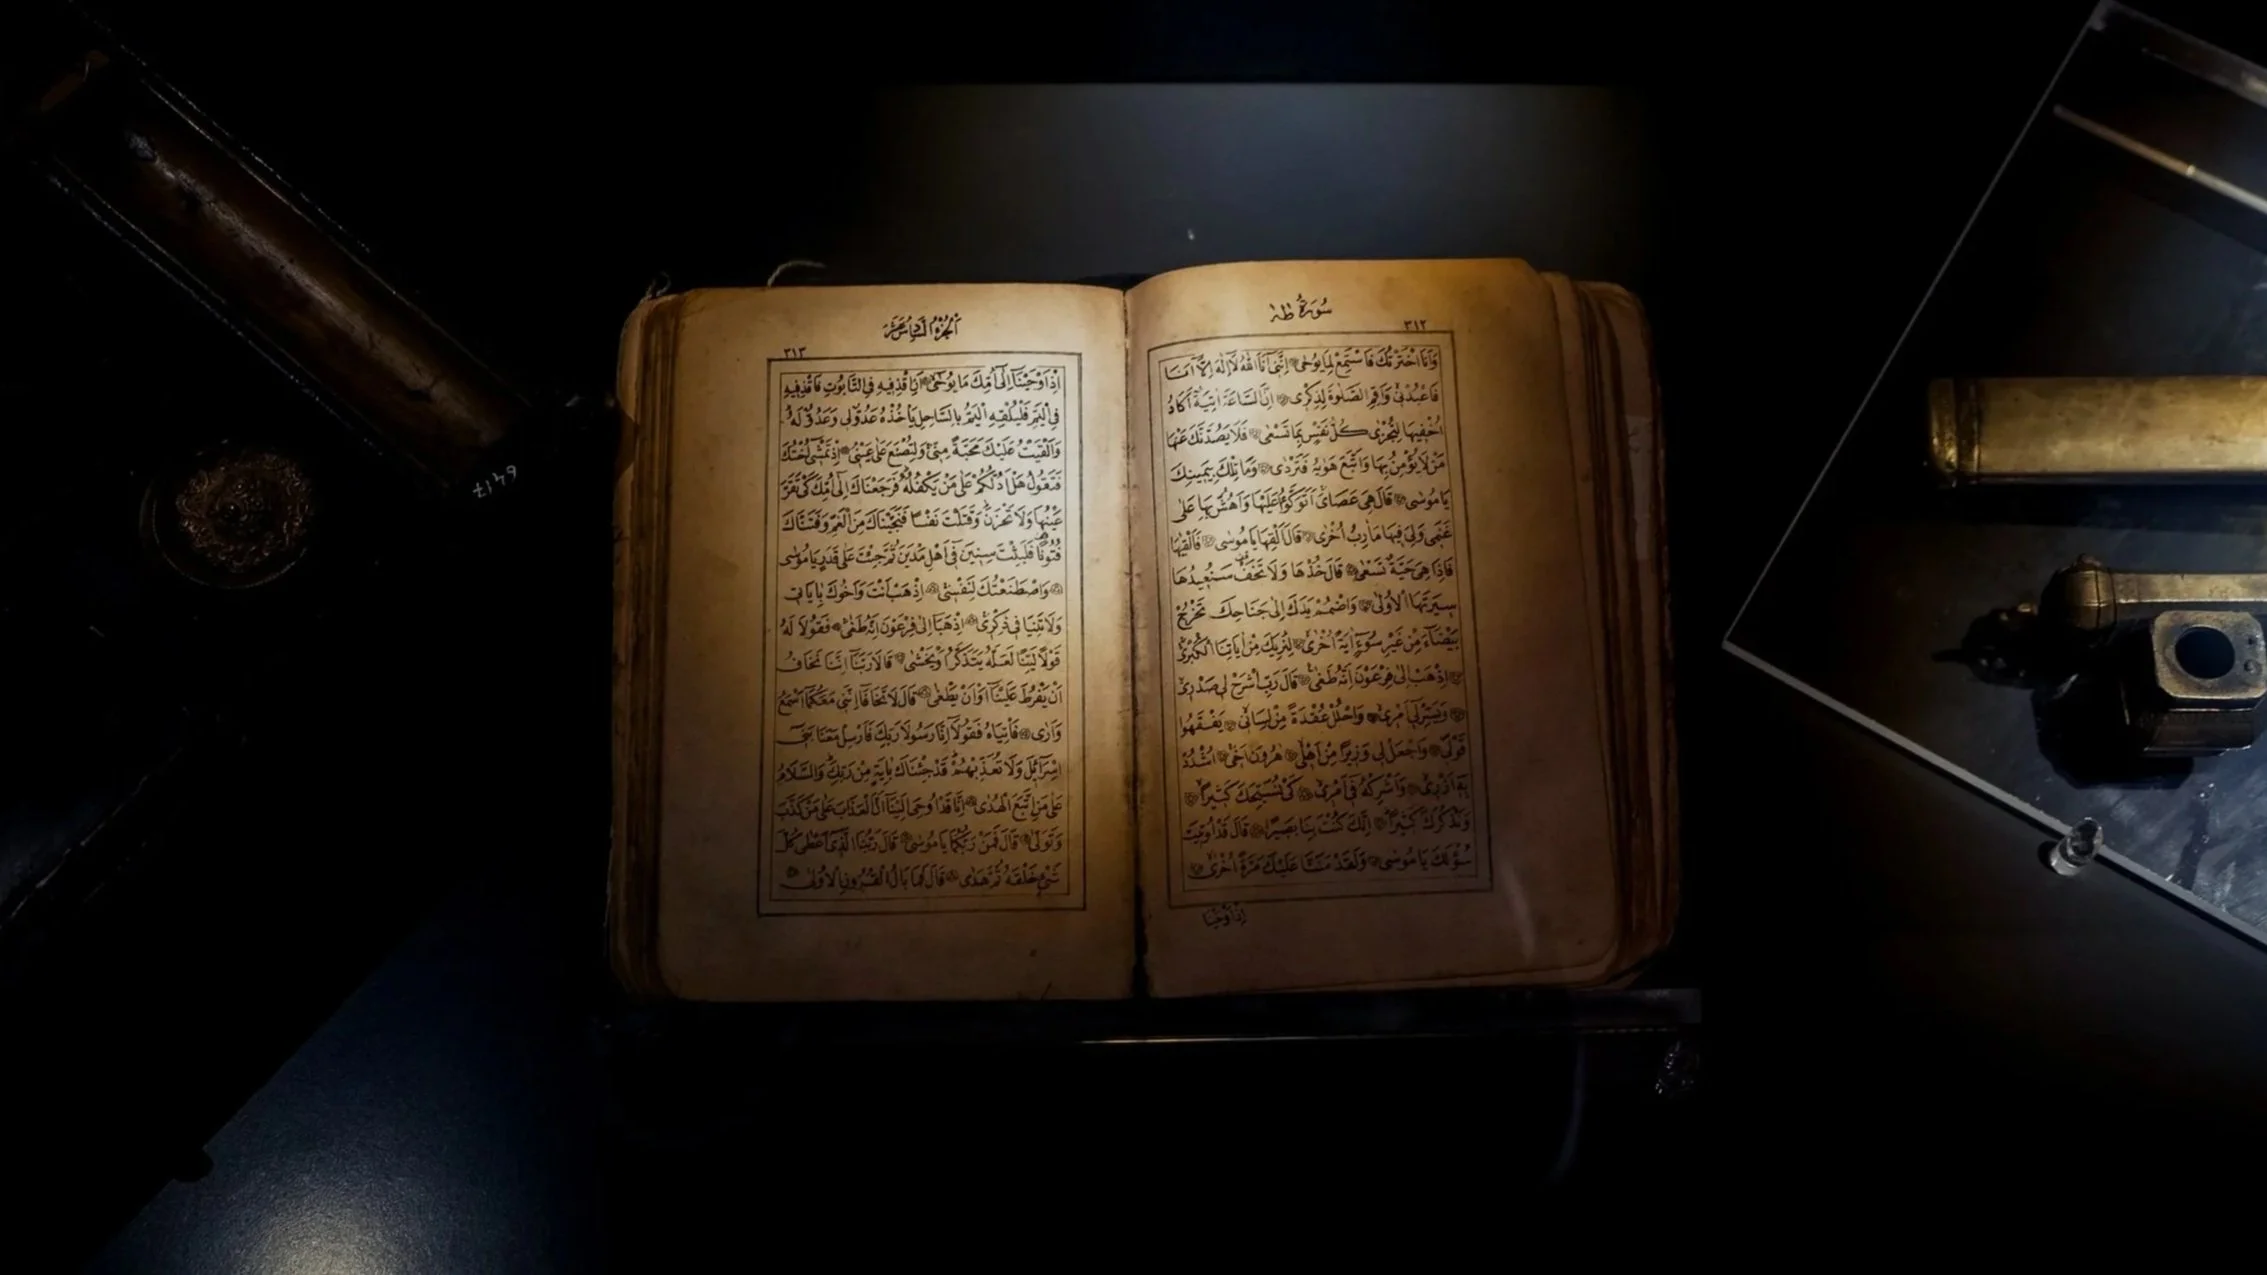 سُورَةُ طٰهٰ
٣١٢
وَاَنَا اخْتَرْتُكَ فَاسْتَمِعْ لِمَا يُوحٰى اِنَّنِى اَنَا اللّٰهُ لَا اِلٰهَ اِلَّا اَنَا
فَاعْبُدْنِى وَاَقِمِ الصَّلٰوةَ لِذِكْرِى اِنَّ السَّاعَةَ اٰتِيَةٌ اَكَادُ
اُخْفِيهَا لِتُجْزٰى كُلُّ نَفْسٍ بِمَا تَسْعٰى فَلَا يَصُدَّنَّكَ عَنْهَا
مَنْ لَا يُؤْمِنُ بِهَا وَاتَّبَعَ هَوٰيهُ فَتَرْدٰى وَمَا تِلْكَ بِيَمِينِكَ
يَا مُوسٰى قَالَ هِىَ عَصَاىَ اَتَوَكَّؤُ عَلَيْهَا وَاَهُشُّ بِهَا عَلٰى
غَنَمِى وَلِىَ فِيهَا مَاٰرِبُ اُخْرٰى قَالَ اَلْقِهَا يَا مُوسٰى فَاَلْقٰيهَا
فَاِذَا هِىَ حَيَّةٌ تَسْعٰى قَالَ خُذْهَا وَلَا تَخَفْ سَنُعِيدُهَا
سِيرَتَهَا الْاُولٰى وَاضْمُمْ يَدَكَ اِلٰى جَنَاحِكَ تَخْرُجْ
بَيْضَاءَ مِنْ غَيْرِ سُوءٍ اٰيَةً اُخْرٰى لِنُرِيَكَ مِنْ اٰيَاتِنَا الْكُبْرٰى
اِذْهَبْ اِلٰى فِرْعَوْنَ اِنَّهُ طَغٰى قَالَ رَبِّ اشْرَحْ لِى صَدْرِى
وَيَسِّرْ لِى اَمْرِى وَاحْلُلْ عُقْدَةً مِنْ لِسَانِى يَفْقَهُوا
قَوْلِى وَاجْعَلْ لِى وَزِيرًا مِنْ اَهْلِى هٰرُونَ اَخِى اُشْدُدْ
بِهِ اَزْرِى وَاَشْرِكْهُ فِى اَمْرِى كَىْ نُسَبِّحَكَ كَثِيرًا
وَنَذْكُرَكَ كَثِيرًا اِنَّكَ كُنْتَ بِنَا بَصِيرًا قَالَ قَدْ اُوتِيتَ
سُؤْلَكَ يَا مُوسٰى وَلَقَدْ مَنَنَّا عَلَيْكَ مَرَّةً اُخْرٰى
اِذْ اَوْحَيْنَا
اَلْجُزْءُ السَّادِسُ عَشَرَ
٣١٣
اِذْ اَوْحَيْنَا اِلٰى اُمِّكَ مَا يُوحٰى اَنِ اقْذِفِيهِ فِى التَّابُوتِ فَاقْذِفِيهِ
فِى الْيَمِّ فَلْيُلْقِهِ الْيَمُّ بِالسَّاحِلِ يَاْخُذْهُ عَدُوٌّ لِى وَعَدُوٌّ لَهُ
وَاَلْقَيْتُ عَلَيْكَ مَحَبَّةً مِنِّى وَلِتُصْنَعَ عَلٰى عَيْنِى اِذْ تَمْشِى اُخْتُكَ
فَتَقُولُ هَلْ اَدُلُّكُمْ عَلٰى مَنْ يَكْفُلُهُ فَرَجَعْنَاكَ اِلٰى اُمِّكَ كَىْ تَقَرَّ
عَيْنُهَا وَلَا تَحْزَنَ وَقَتَلْتَ نَفْسًا فَنَجَّيْنَاكَ مِنَ الْغَمِّ وَفَتَنَّاكَ
فُتُونًا فَلَبِثْتَ سِنِينَ فِى اَهْلِ مَدْيَنَ ثُمَّ جِئْتَ عَلٰى قَدَرٍ يَا مُوسٰى
وَاصْطَنَعْتُكَ لِنَفْسِى اِذْهَبْ اَنْتَ وَاَخُوكَ بِاٰيَاتِى
وَلَا تَنِيَا فِى ذِكْرِى اِذْهَبَا اِلٰى فِرْعَوْنَ اِنَّهُ طَغٰى فَقُولَا لَهُ
قَوْلًا لَيِّنًا لَعَلَّهُ يَتَذَكَّرُ اَوْ يَخْشٰى قَالَا رَبَّنَا اِنَّنَا نَخَافُ
اَنْ يَفْرُطَ عَلَيْنَا اَوْ اَنْ يَطْغٰى قَالَ لَا تَخَافَا اِنَّنِى مَعَكُمَا اَسْمَعُ
وَاَرٰى فَاْتِيَاهُ فَقُولَا اِنَّا رَسُولَا رَبِّكَ فَاَرْسِلْ مَعَنَا بَنِى
اِسْرَائِلَ وَلَا تُعَذِّبْهُمْ قَدْ جِئْنَاكَ بِاٰيَةٍ مِنْ رَبِّكَ وَالسَّلَامُ
عَلٰى مَنِ اتَّبَعَ الْهُدٰى اِنَّا قَدْ اُوحِىَ اِلَيْنَا اَنَّ الْعَذَابَ عَلٰى مَنْ كَذَّبَ
وَتَوَلّٰى قَالَ فَمَنْ رَبُّكُمَا يَا مُوسٰى قَالَ رَبُّنَا الَّذِى اَعْطٰى كُلَّ
شَىْءٍ خَلْقَهُ ثُمَّ هَدٰى قَالَ فَمَا بَالُ الْقُرُونِ الْاُولٰى